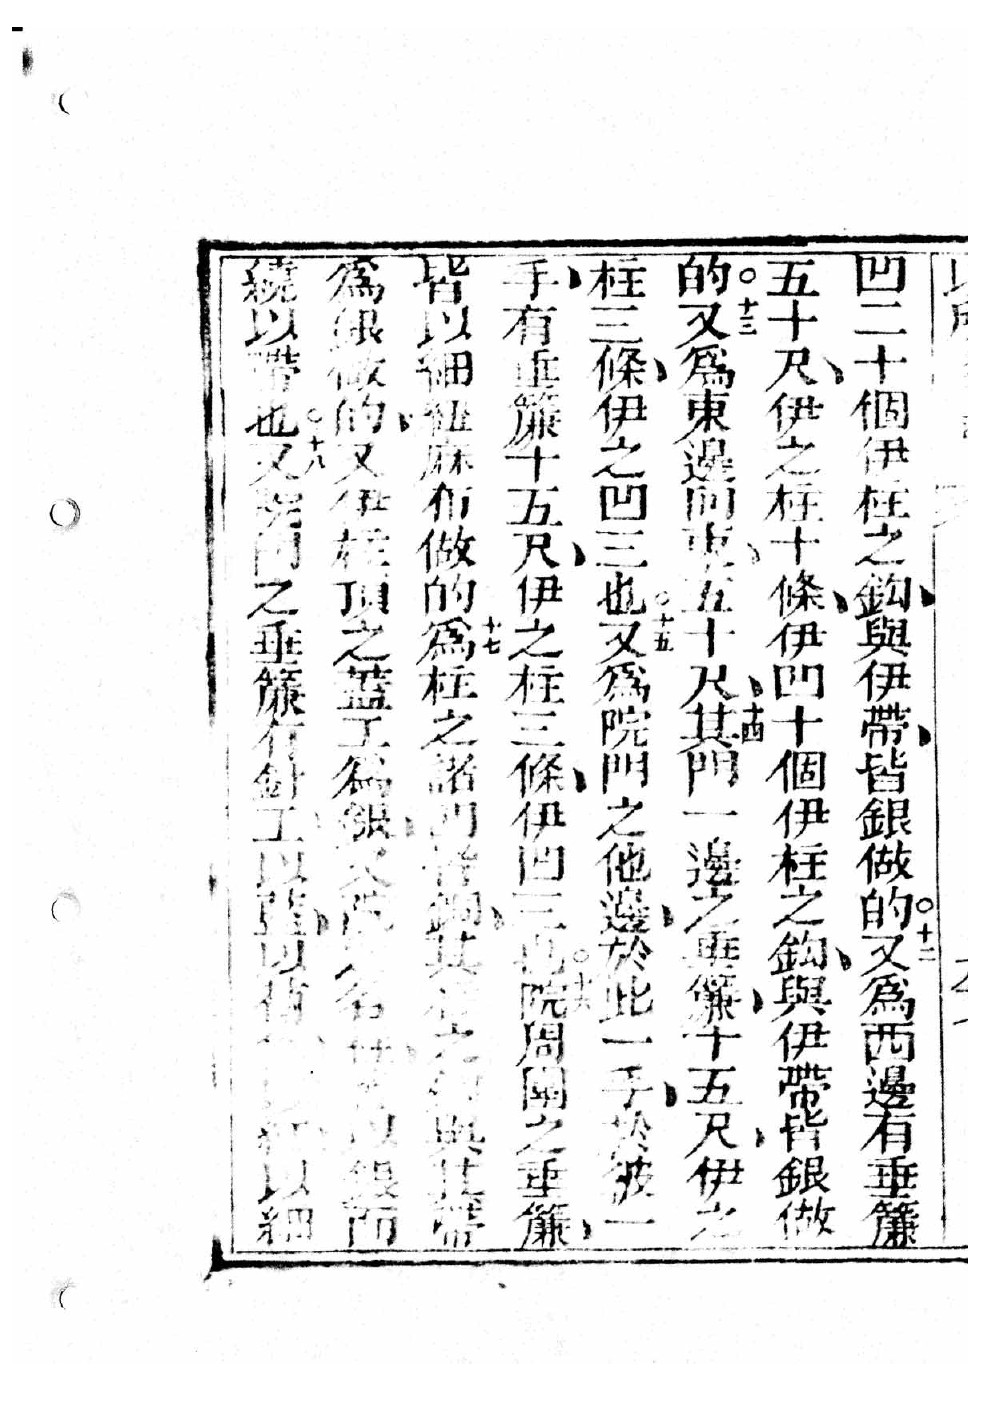 凹二十個伊柱之鈎與伊帶皆銀做的○十二又爲西邊有垂簾
五十尺伊之柱十條伊凹十個伊柱之鈎與伊帶皆銀做
的○十三又爲東邊向東五十尺十四其門一邊之垂簾十五尺伊之
柱三條伊之凹三也○十五又爲院門之他邊於此一手於彼一
手有垂簾十五尺伊之柱三條伊凹三也○十六院周圍之垂簾
皆以細紐麻布做的十七爲柱之諸凹皆銅其柱之鈎與其帶
爲銀做的又伊柱頂之蓋工爲銀又院之各柱以銀而
繞以帶也○十八又院門之垂簾行針工以藍以紅以細